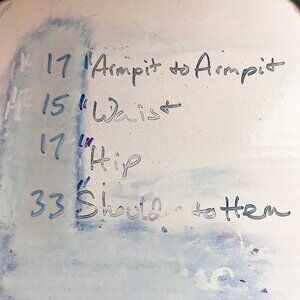 17" Armpit to Armpit
15" Waist
17" Hip
33" Shoulder to Hem